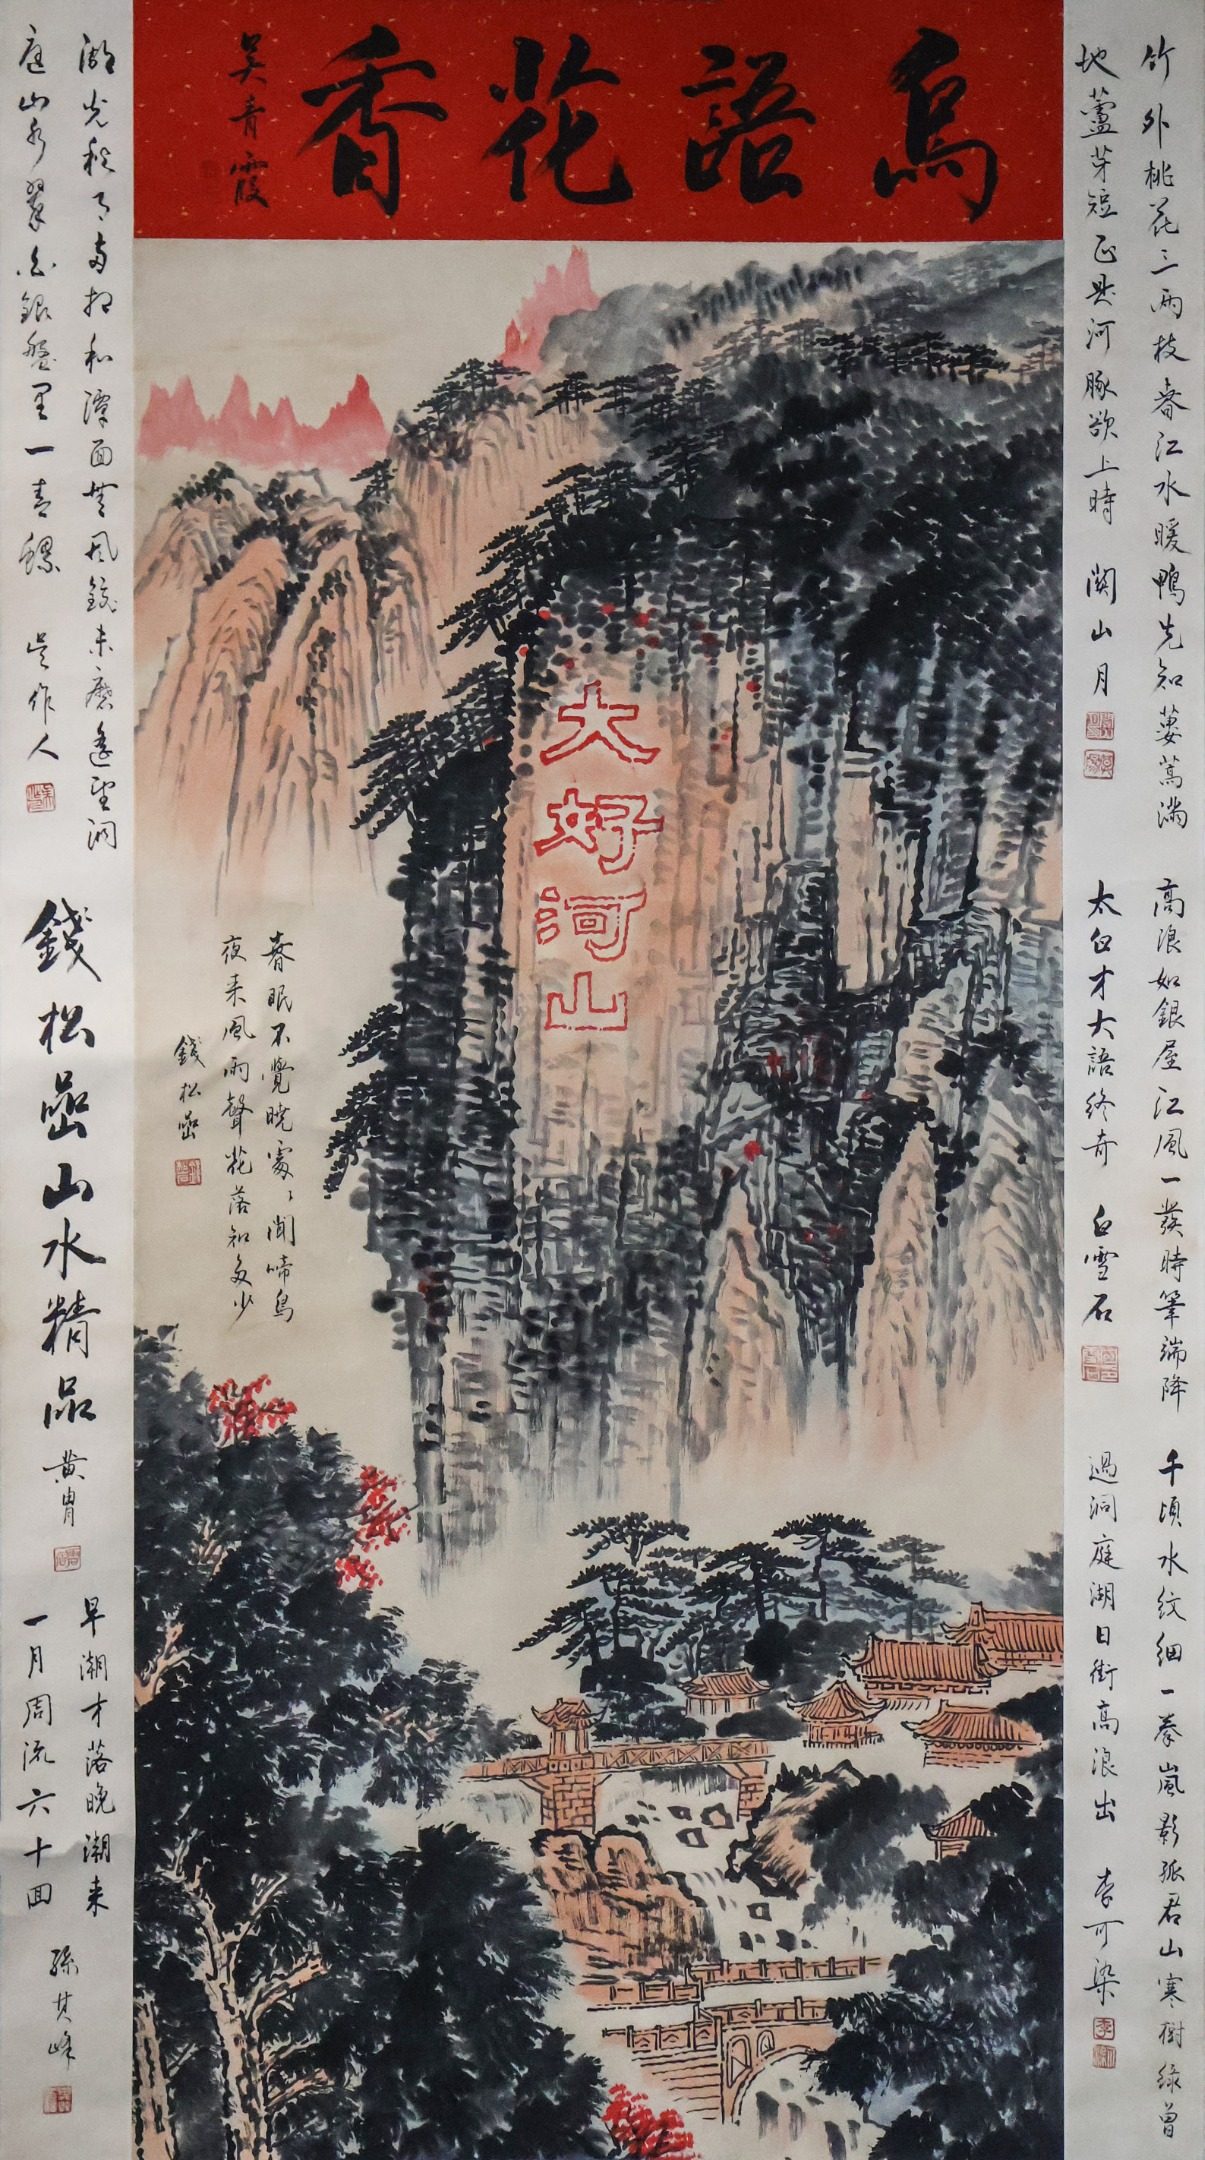 鳥語花香
吳青霞
竹外桃花三兩枝春江水暖鴨先知蔞蒿滿
地蘆芽短正是河豚欲上時 關山月
高浪如銀屋江風一發時筆端降
太白才大語終奇 白雪石
千頃水紋細一拳嵐影孤君山寒樹綠曾
過洞庭湖日銜高浪出 李可染
大好河山
春眠不覺曉處々聞啼鳥
夜來風雨聲花落知多少
錢松喦
湖光秋月兩相和潭面無風鏡未磨遙望洞
庭山水翠白銀盤里一青螺 吳作人
錢松喦山水精品 黃胄
早潮才落晚潮來
一月周流六十回 孫其峰